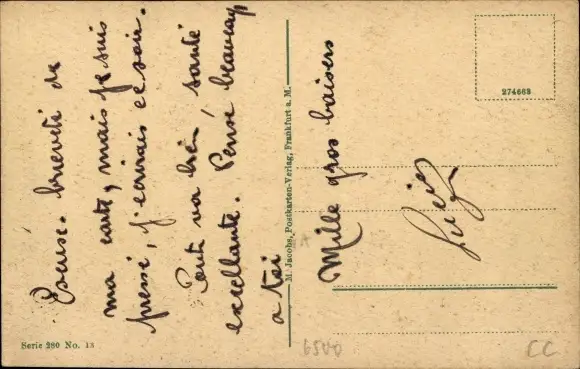 Excuse. brieveté de
ma carte, mais je suis
pressé, j'écrirais ce soir.
Tout va bien, santé
excellante. Pensé beaucoup
a toi
Mille gros baisers
M. Jacobs, Postkarten-Verlag, Frankfurt a. M.
274668
Serie 280 No. 13
6500
CC